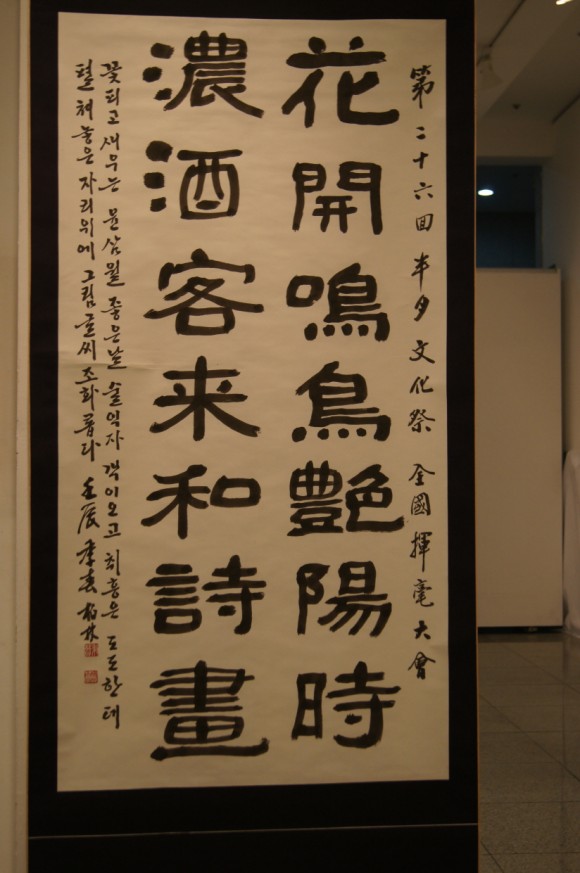 第二十六回 半月文化祭 全國揮毫大會
花開鳴鳥艶陽時
濃酒客来和詩畫
꽃피고 새우는 윤삼월 좋은날 술익자 객이오고 취흥은 도도한데
펼쳐놓은 자리위에 그림글씨 조화롭다 壬辰 季春 柏林